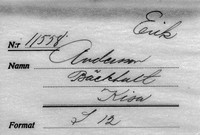 Erik
N:r 11558.
Namn Anderson
Bäckhult
Kisa
Format S 12